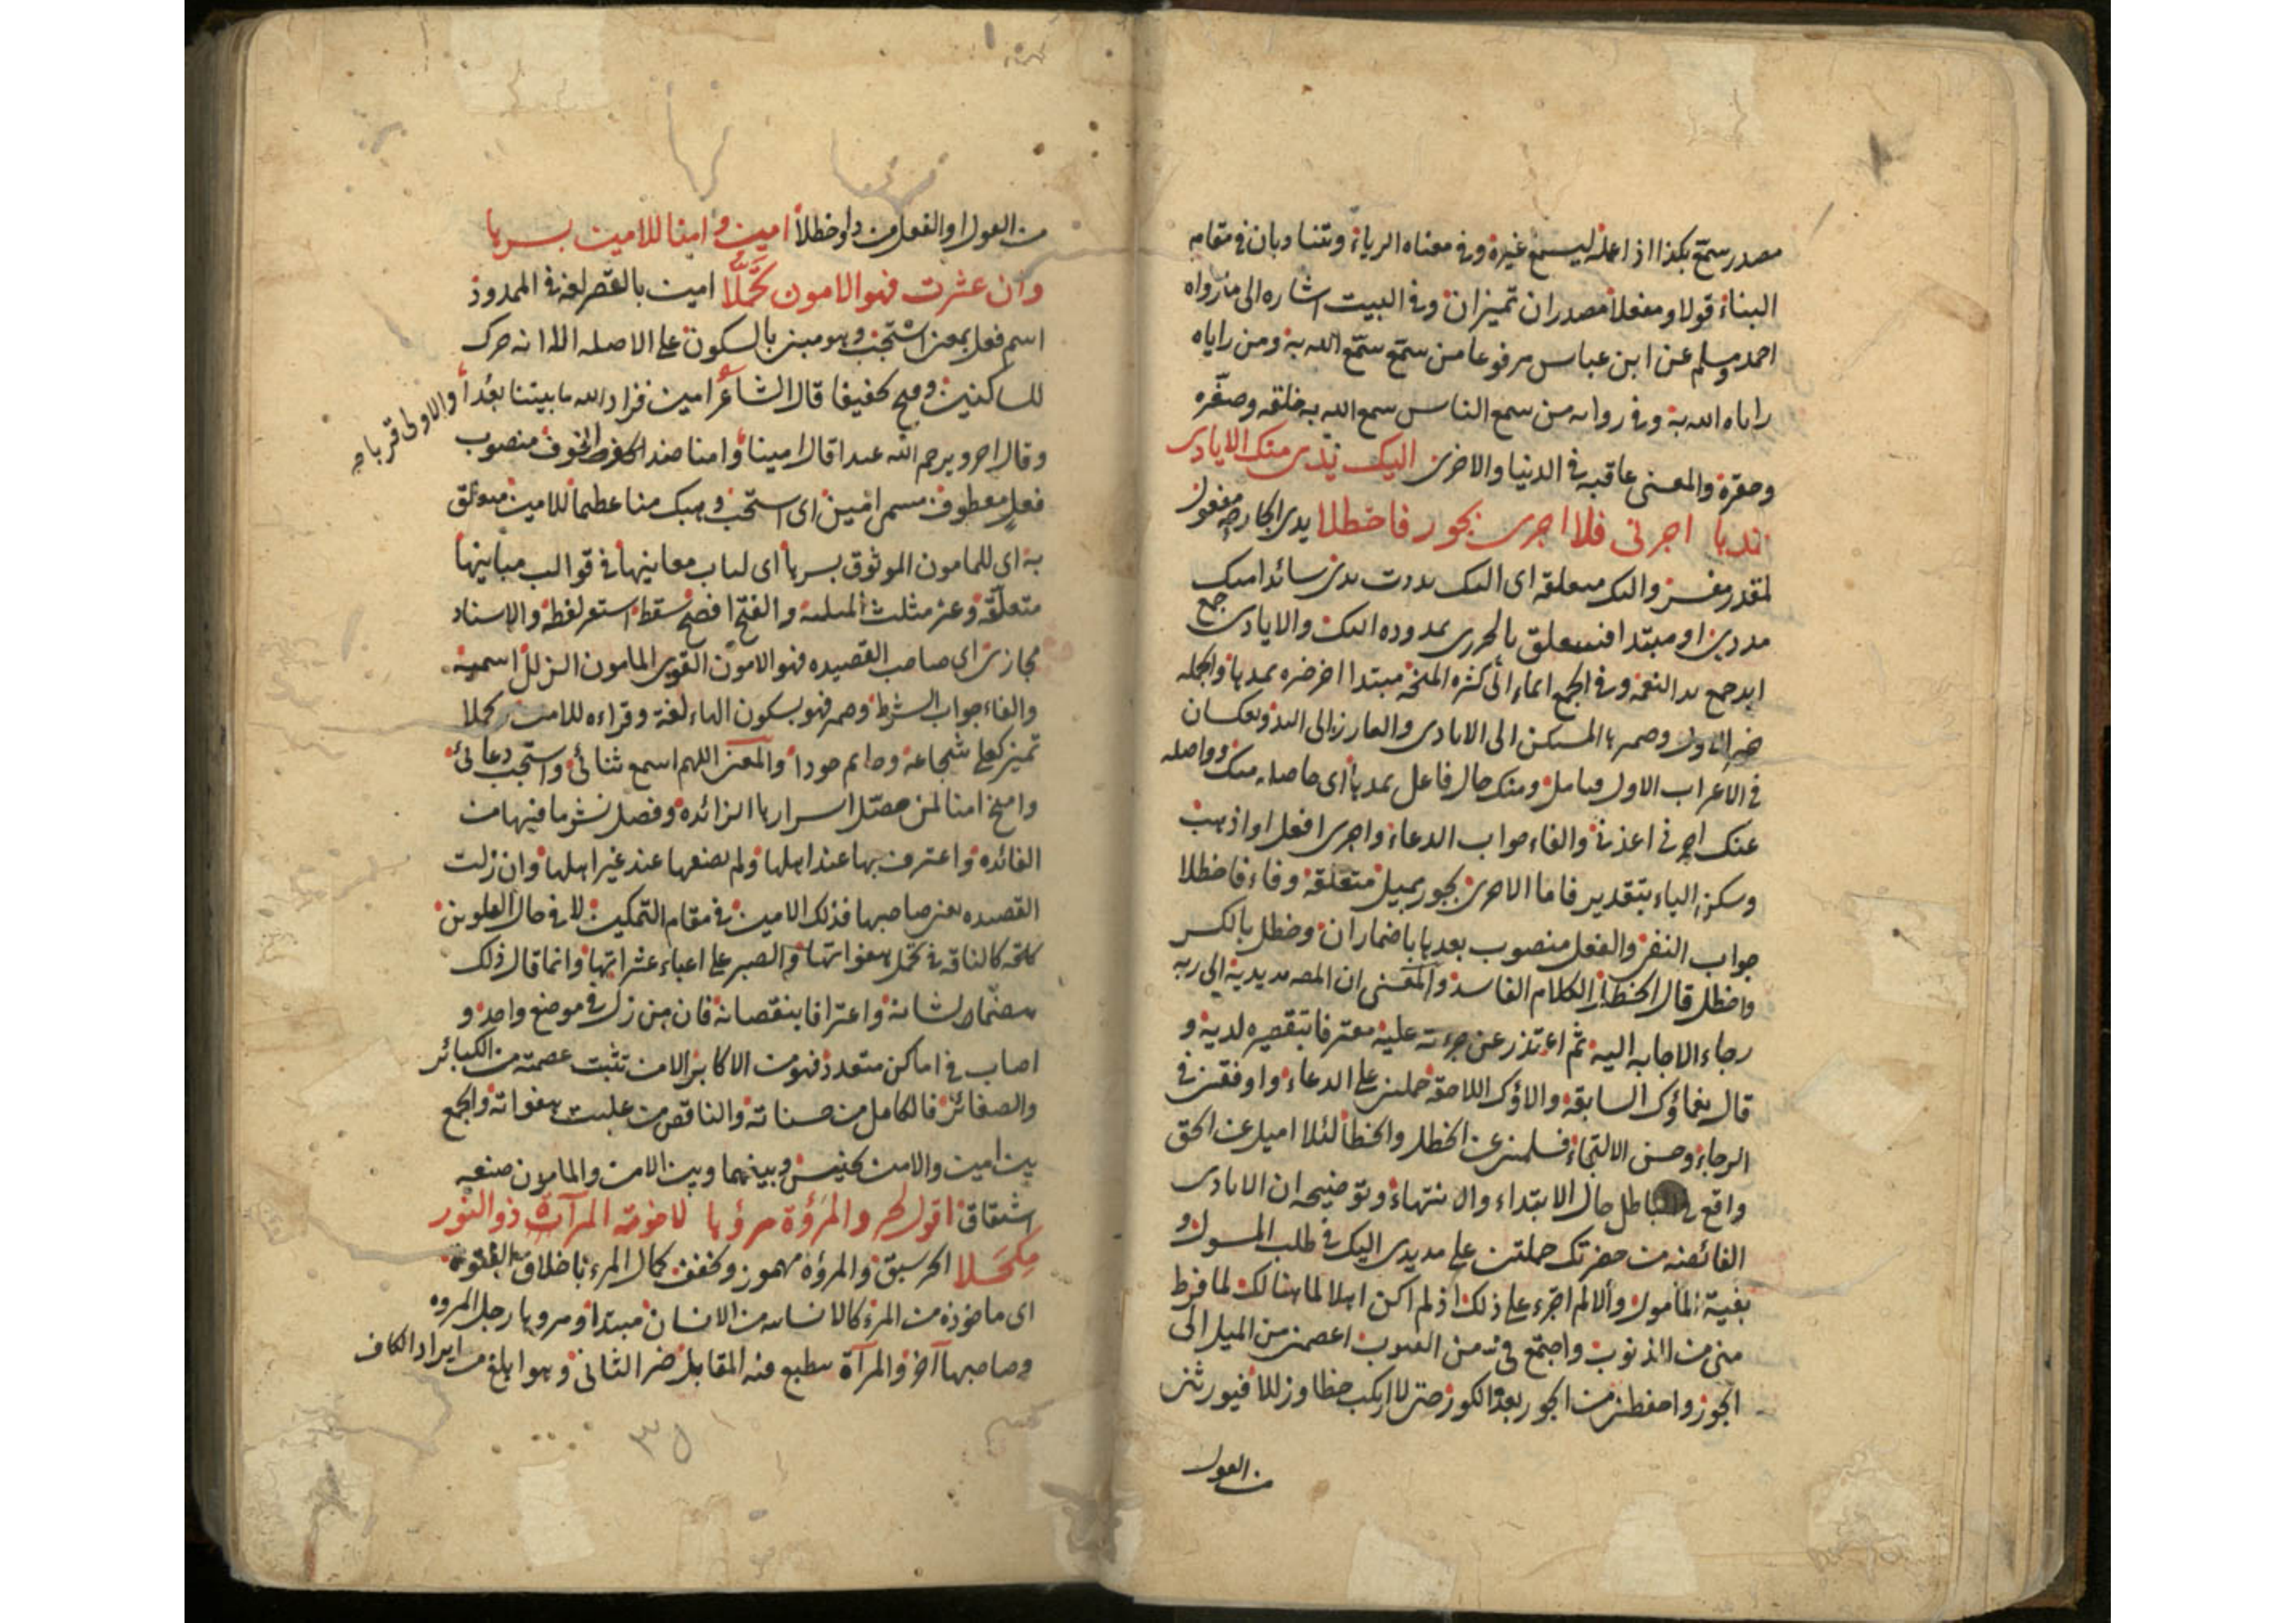 مصدر سمّع بكذا اذا عمله ليسمع غيره وفي معناه الرياء ويتناوبان في مقام
البناء قولا ومفعلا مصدران تميزان وفي البيت اشاره الى ما رواه
احمد ومسلم عن ابن عباس مرفوعا من سمّع سمّع الله به ومن راياه
راياه الله به وفي روايه من سمع الناس سمع الله به خلقه وصغّره
وحقره والمعنى عاقبه في الدنيا والاخرى اليك يدى منك الايادى
تمدها اجرنى فلا اجرى بجور فاخطلا يدى الجارحه مفعول
لمقدر مفسر واليك متعلقه اى اليك مددت يدى سائدا
مددى او مبتدا فيتعلق بمدوده اليك والايادى جمع
ايد جمع يد النعمة وفي الجمع ايماء الى كثره المنحة مبتدا اخر خبره تمدها والجمله
خبر الاول وضمير ها المستكن الى الايادى والبارز الى اليد ويعكسان
في الاعراب الاول فتامل ومنك حال فاعل تمدها اى حاصله منك وواصله
عنك اجرنى اعذنى والفاء جواب الدعاء واجرى افعل او اذهب
وسكن الياء بتقدير فانا لا اجرى بجور بميل متعلقه وفاء فاخطلا
جواب النفى والفعل منصوب بعدها باضمار ان وخطل بالكسر
واخطل قال الخطل الكلام الفاسد والمعنى ان المصـ مد يديه الى ربه
رجاء الاجابه اليه ثم اعتذر عن جرءته عليه معترفا بتقصيره لديه و
قال نعماؤك السابقه والاؤك اللاحقه حملتنى على الدعاء واوقفتنى في
الرجاء وحسن الالتجاء فسلمنى عن الخطل والخطا لئلا اميل عن الحق
واقع في الباطل حال الابتداء والانتهاء وتوضيحه ان الايادى
الفائضه من حضرتك حملتنى على مد يدى اليك في طلب المسول و
بغية المامول والا لم اجرء على ذلك اذ لم اكن اهلا لما هنالك لما فرط
منى من الذنوب واجتمع في من العيوب اعصمنى من الميل الى
الجور واحفظنى من الجور بعد الكور حتى لا اركب خطا وزللا فيورثنى
من القول
من القول او الفعل من دا وخطلا امين وامنا للامين بسرها
وان عثرت فهو الامون تحمّلا امين بالقصر لغه في الممدود
اسم فعل بمعنى استجب وهو مبنى بالسكون على الاصل الا انه حرك
للساكنين وفتح تخفيفا قال الشاعر امين فزاد الله ما بيننا بعدا
وقال اخر ويرحم الله عبدا قال امينا وامنا ضد الخوف منصوب
فعل معطوف مسمى امين اى استجب وهبك منا عظيما للامين متعلق
به اى للمامون الموثوق بسرها اى لباب معانيها في قوالب مبانيها
متعلقه وعثر مثلث المثلثه والفتح افصح سقط استعر لغظه والاسناد
مجازى اى صاحب القصيده فهو الامون القوى المامون الزلل اسميه
والفاء جواب الشرط وضمير فهو بسكون الهاء لغة وقراءه للامين تحملا
تميز كعلى شجاعة وحاتم جودا والمعنى اللهم اسمع ثنائى واستجب دعائى
وامنح امنا لمن حصّل اسرارها الزائده وفصل نشر ما فيها من
الفائده واعترف بها عند اهلها ولم يضعها عند غير اهلها وان زلت
القصيده يعنى صاحبها فذلك الامين في مقام التمكين لا في حال التلوين
كلحه كالناقه في تحمل هفواتها والصبر على اعباء عثراتها وانما قال ذلك
هضما لشانه واعترافا بنقصانه فان من زل في موضع واحد و
اصاب في اماكن متعدده فهو من الاكابر الا من تثبت عصمته من الكبائر
والصغائر فالكامل من حسناته والناقص من غلبت هفواته والجمع
بين امين والامن تجنيس وبينهما وبين الامين والمامون صنعه
اشتقاق اقول لحر والمرؤة مرؤها لاخوته المرآة ذو النور
مكحلا الحر سبق والمرؤه مهموز ويخفف كمال المرء باخلاق الفتوه
اى ماخوذه من المرء كالانسانيه من الانسان مبتدا ومروها رجل المروه
وصاحبها آخر والمرآة يطبع فيه المقابل خبر الثانى وهو ابلغ من ايراد الكاف
والاولى قرباه